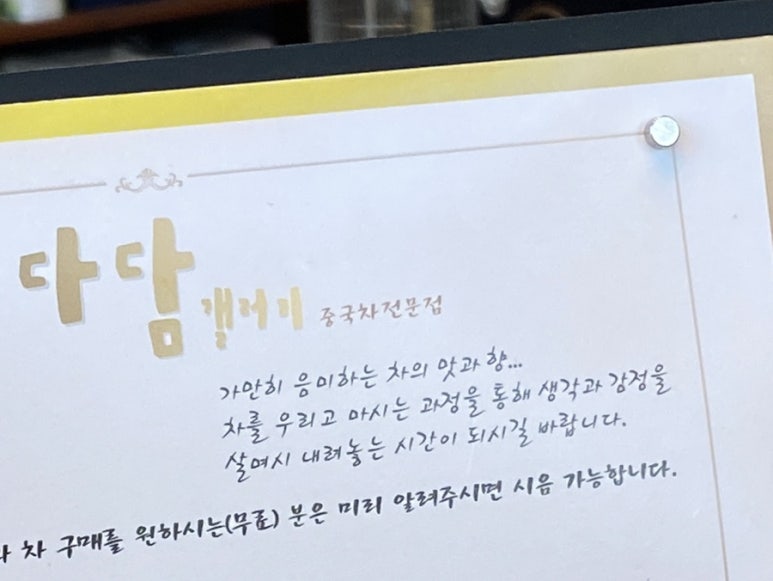 다담 갤러리 중국차전문점
가만히 음미하는 차의 맛과 향...
차를 우리고 마시는 과정을 통해 생각과 감정을
살며시 내려놓는 시간이 되시길 바랍니다.
차 구매를 원하시는(무료) 분은 미리 알려주시면 시음 가능합니다.